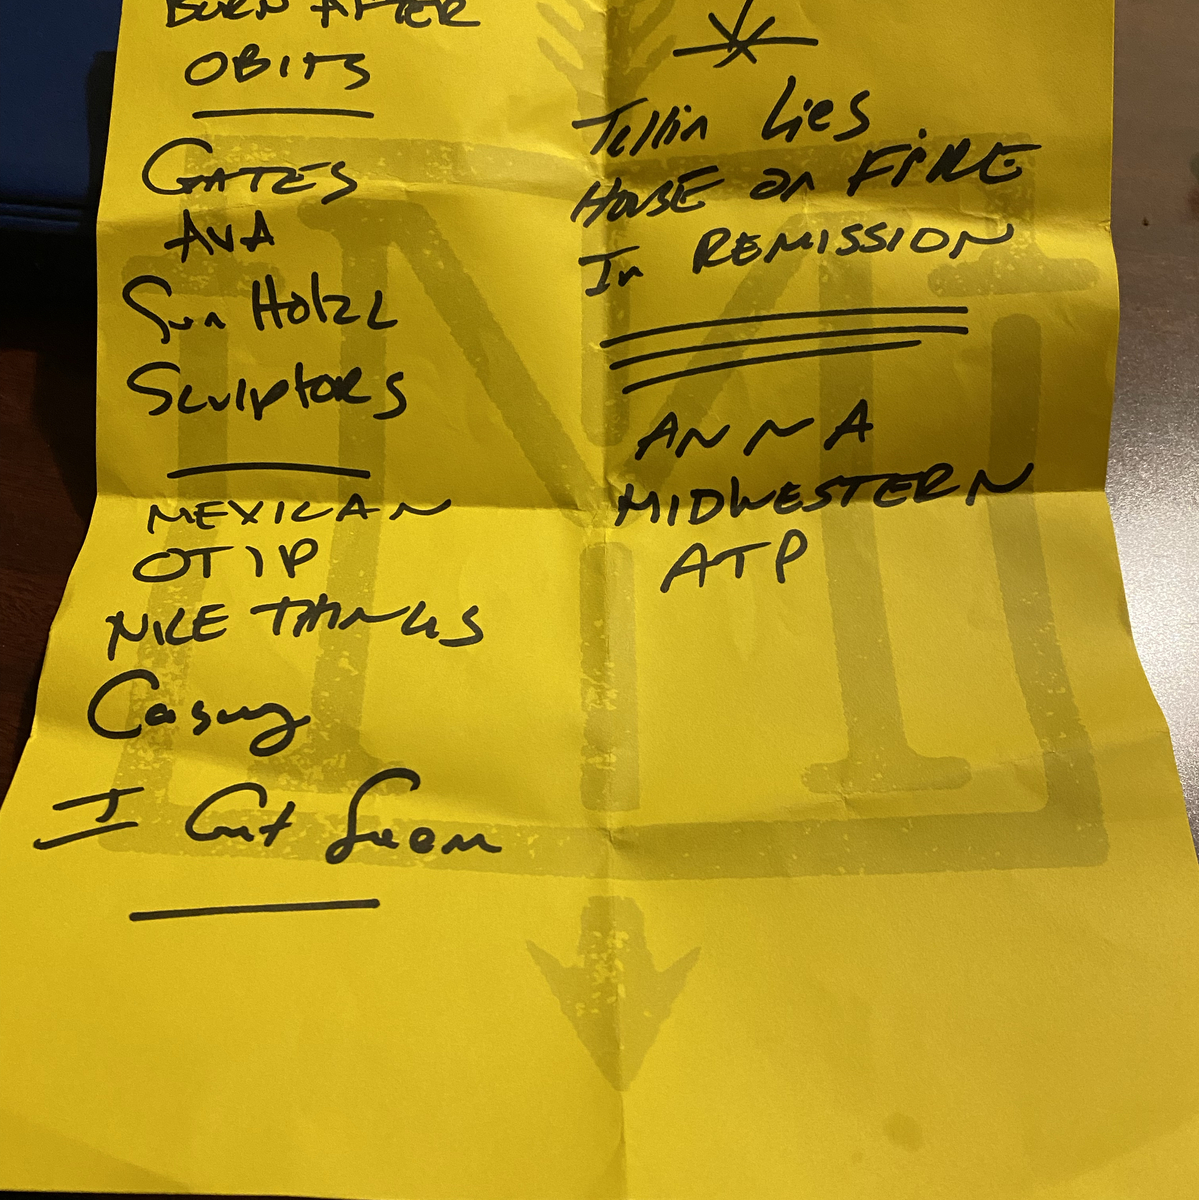 BURN AFTER
OBITS
GATES
AVA
Sun Hotel
Sculptors
MEXICAN
OTIP
NICE THINGS
Casey
I Get
Tellin Lies
HOUSE on FIRE
In REMISSION
ANNA
MIDWESTERN
ATP